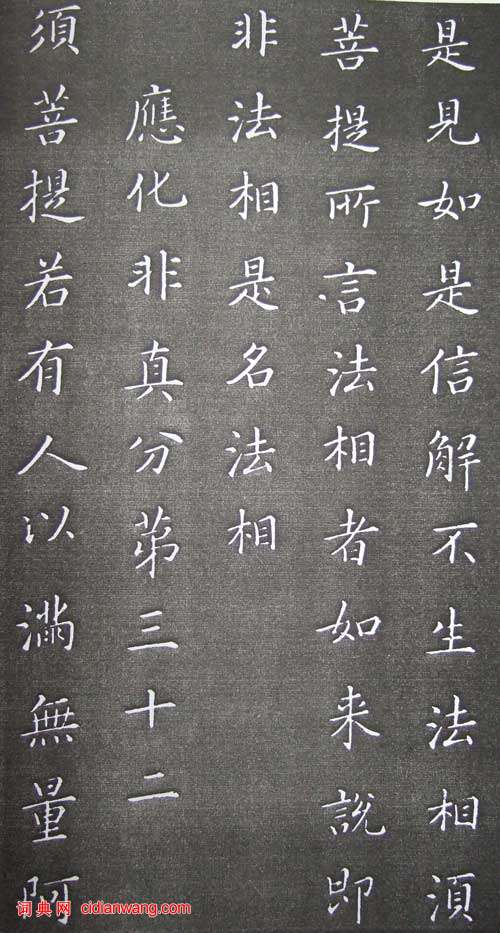 是見如是信解不生法相須
菩提所言法相者如来說即
非法相是名法相
應化非真分苐三十二
須菩提若有人以滿無量阿
词典网 cidianwang.com